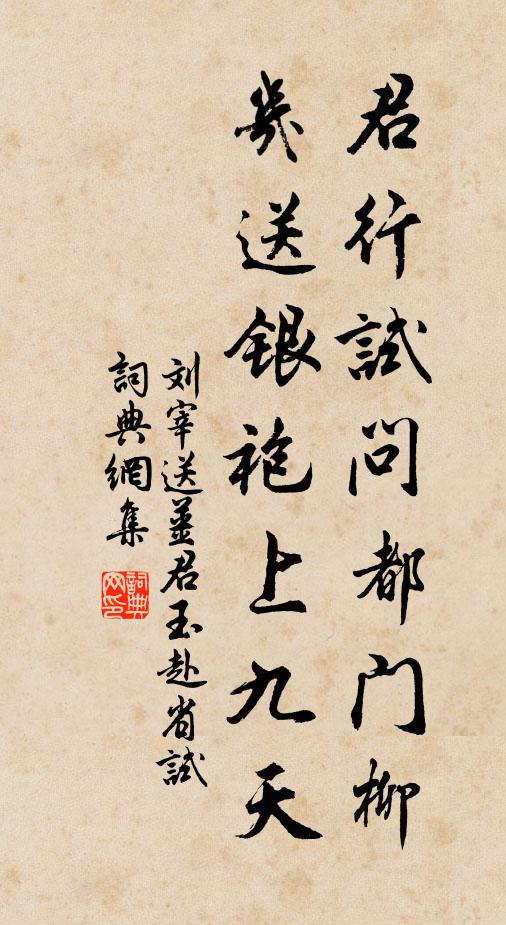 君行試问都门柳
幾送銀袍上九天
刘宰送姜君玉赴省試
詞典網集
詞典网印